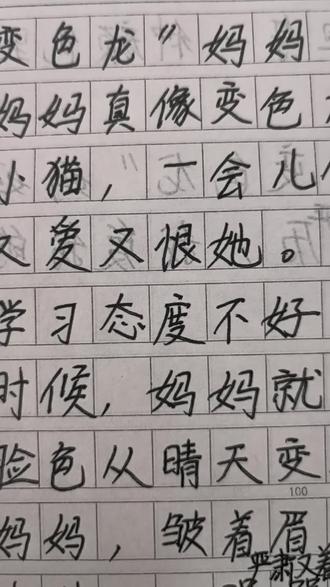 变色龙”妈妈
妈妈真像变色
小猫，一会儿
又爱又恨她。
学习态度不好
时候，妈妈就
脸色从晴天变
100
妈妈，皱着眉
严肃又